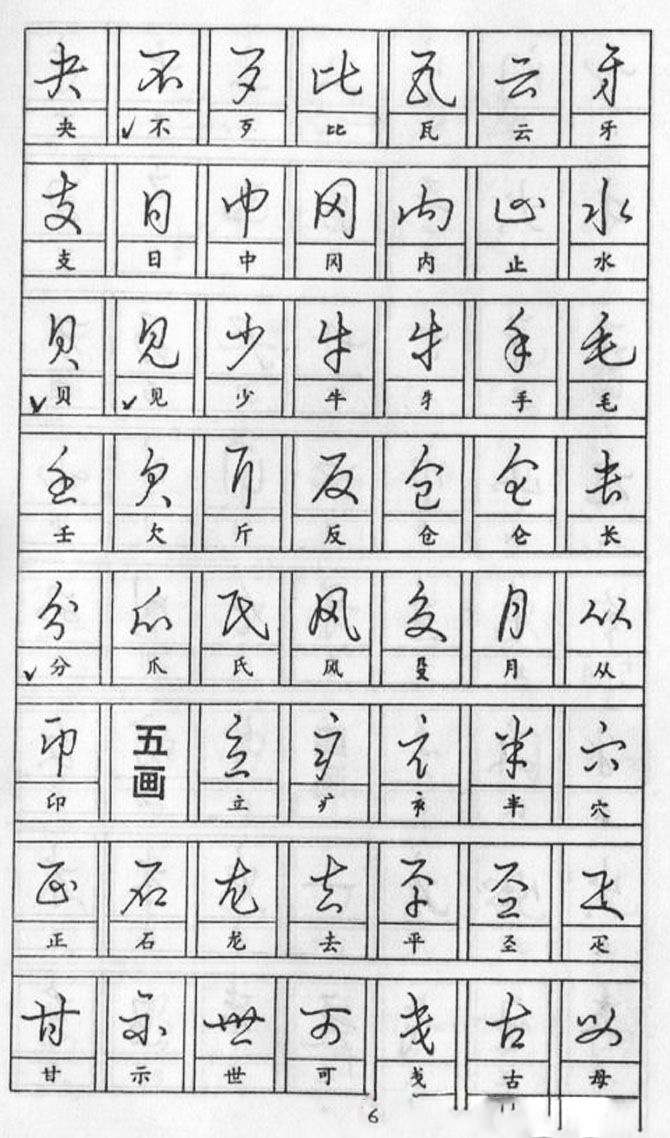 夬 不 歹 比 瓦 云 牙
夬 不 歹 比 瓦 云 牙
支 日 中 冈 内 止 水
支 日 中 冈 内 止 水
贝 见 少 牛 牜 手 毛
贝 见 少 牛 牜 手 毛
壬 欠 斤 反 仓 仑 长
壬 欠 斤 反 仓 仑 长
分 爪 氏 风 殳 月 从
分 爪 氏 风 殳 月 从
印 五画 立 疒 半 穴
印 立 疒 半 穴
正 石 龙 去 平 圣 疋
正 石 龙 去 平 圣 疋
甘 示 世 可 戋 古 母
甘 示 世 可 戋 古 母
6